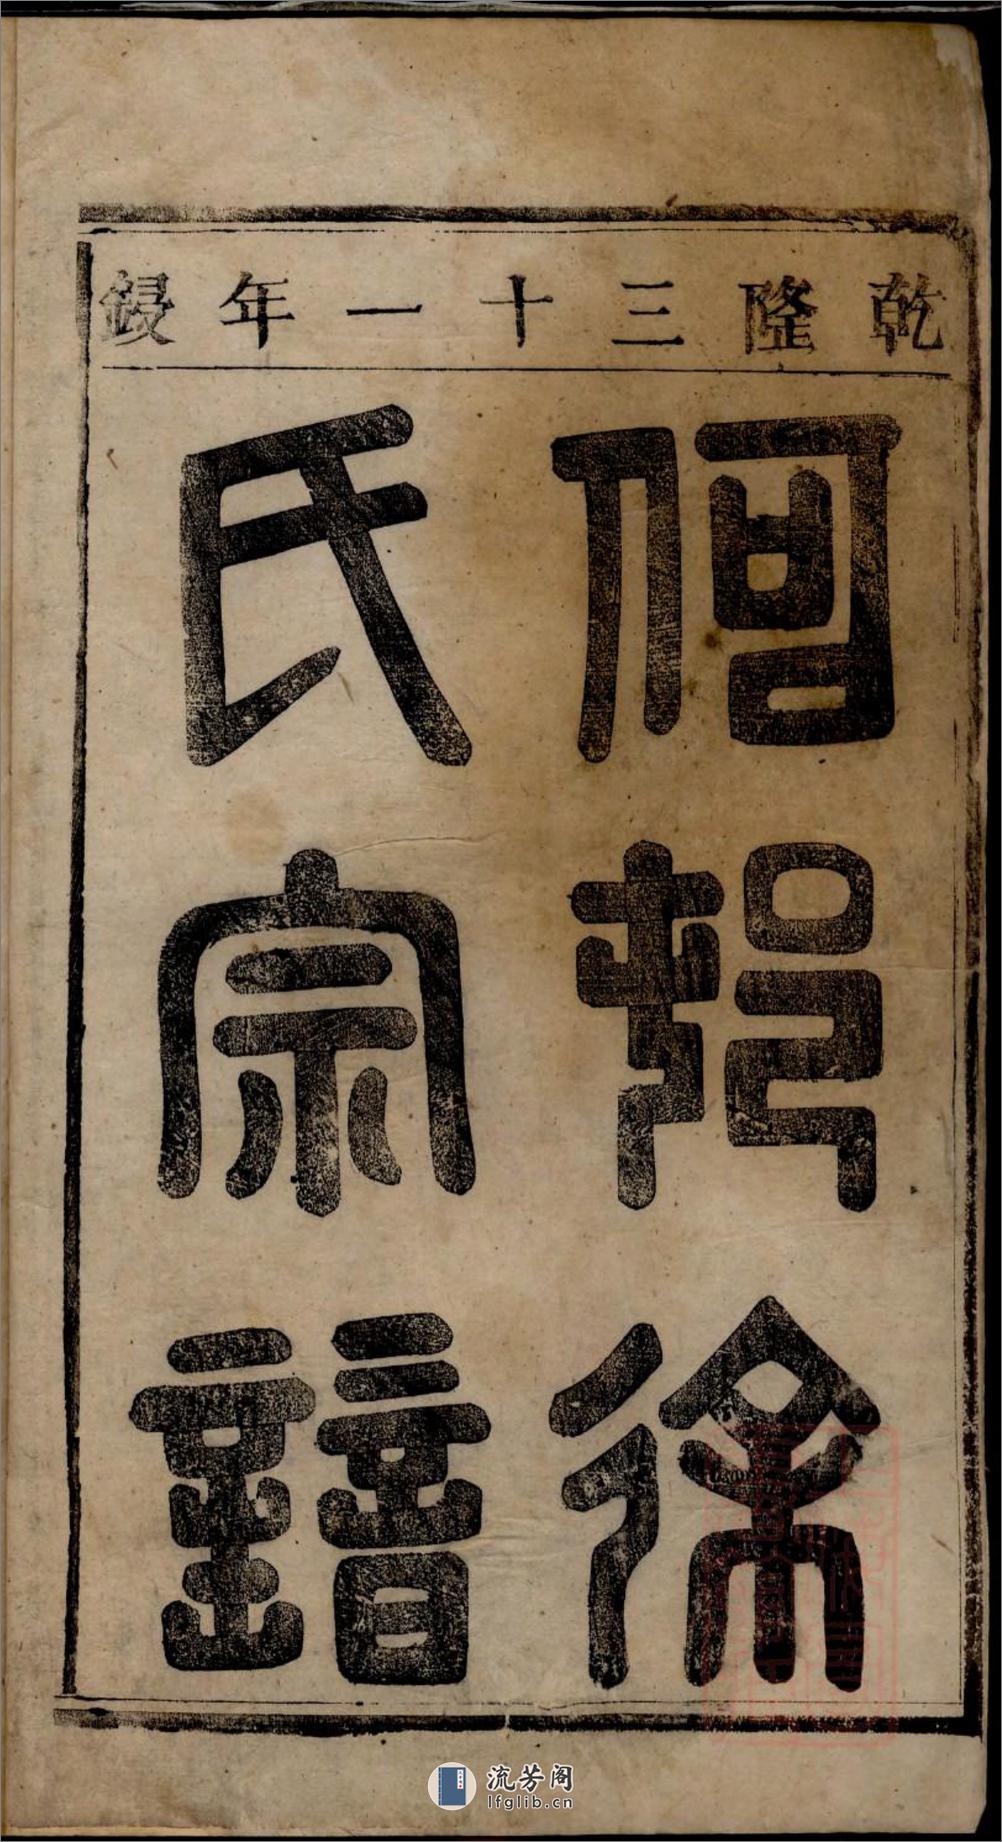 乾隆三十一年鋟
徐
氏宗譜
流芳阁
lfglib.cn